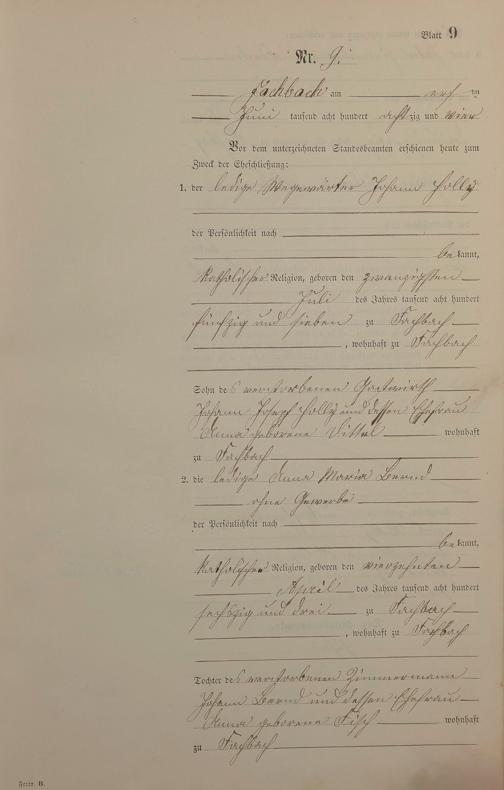 Blatt 9
Nr. 9.
Fachbach am elf ten
Juni tausend acht hundert acht zig und vier
Vor dem unterzeichneten Standesbeamten erschienen heute zum
Zweck der Eheschließung:
1. der ledige Wegewärter Johann Holly
der Persönlichkeit nach
be kannt,
katholischer Religion, geboren den zwanzigsten
Juli des Jahres tausend acht hundert
fünfzig und sieben zu Fachbach
, wohnhaft zu Fachbach
Sohn des verstorbenen Gastwirth
Johann Joseph Holly und dessen Ehefrau
Anna geborene Dittel wohnhaft
zu Fachbach
2. die ledige Anna Maria Bernd
ohne Gewerbe
der Persönlichkeit nach
be kannt,
katholischer Religion, geboren den vierzehnten
April des Jahres tausend acht hundert
sechszig und drei zu Fachbach
, wohnhaft zu Fachbach
Tochter des verstorbenen Zimmermann
Johann Bernd und dessen Ehefrau
Anna geborene Fisch wohnhaft
zu Fachbach
Form. B.